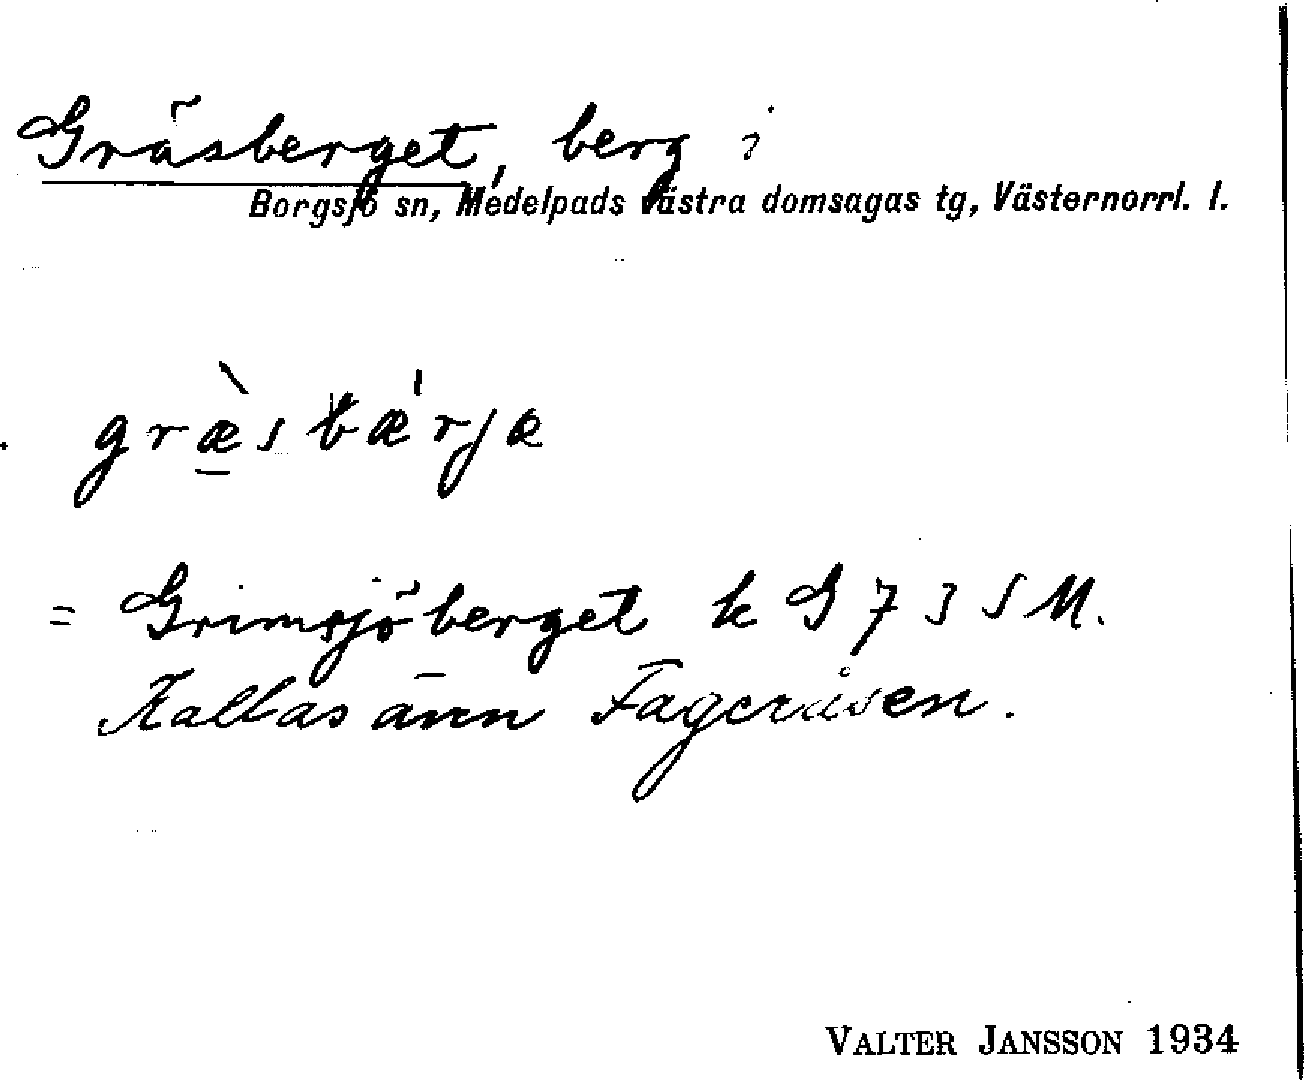 Gräsberget, berg i
Borgsjö sn, Medelpads västra domsagas tg, Västernorrl. l.
græ̀sbæ̍rjæ
= Grimsjöberget k G 7 3 S M.
Kallas även Fageråsen.
VALTER JANSSON 1934